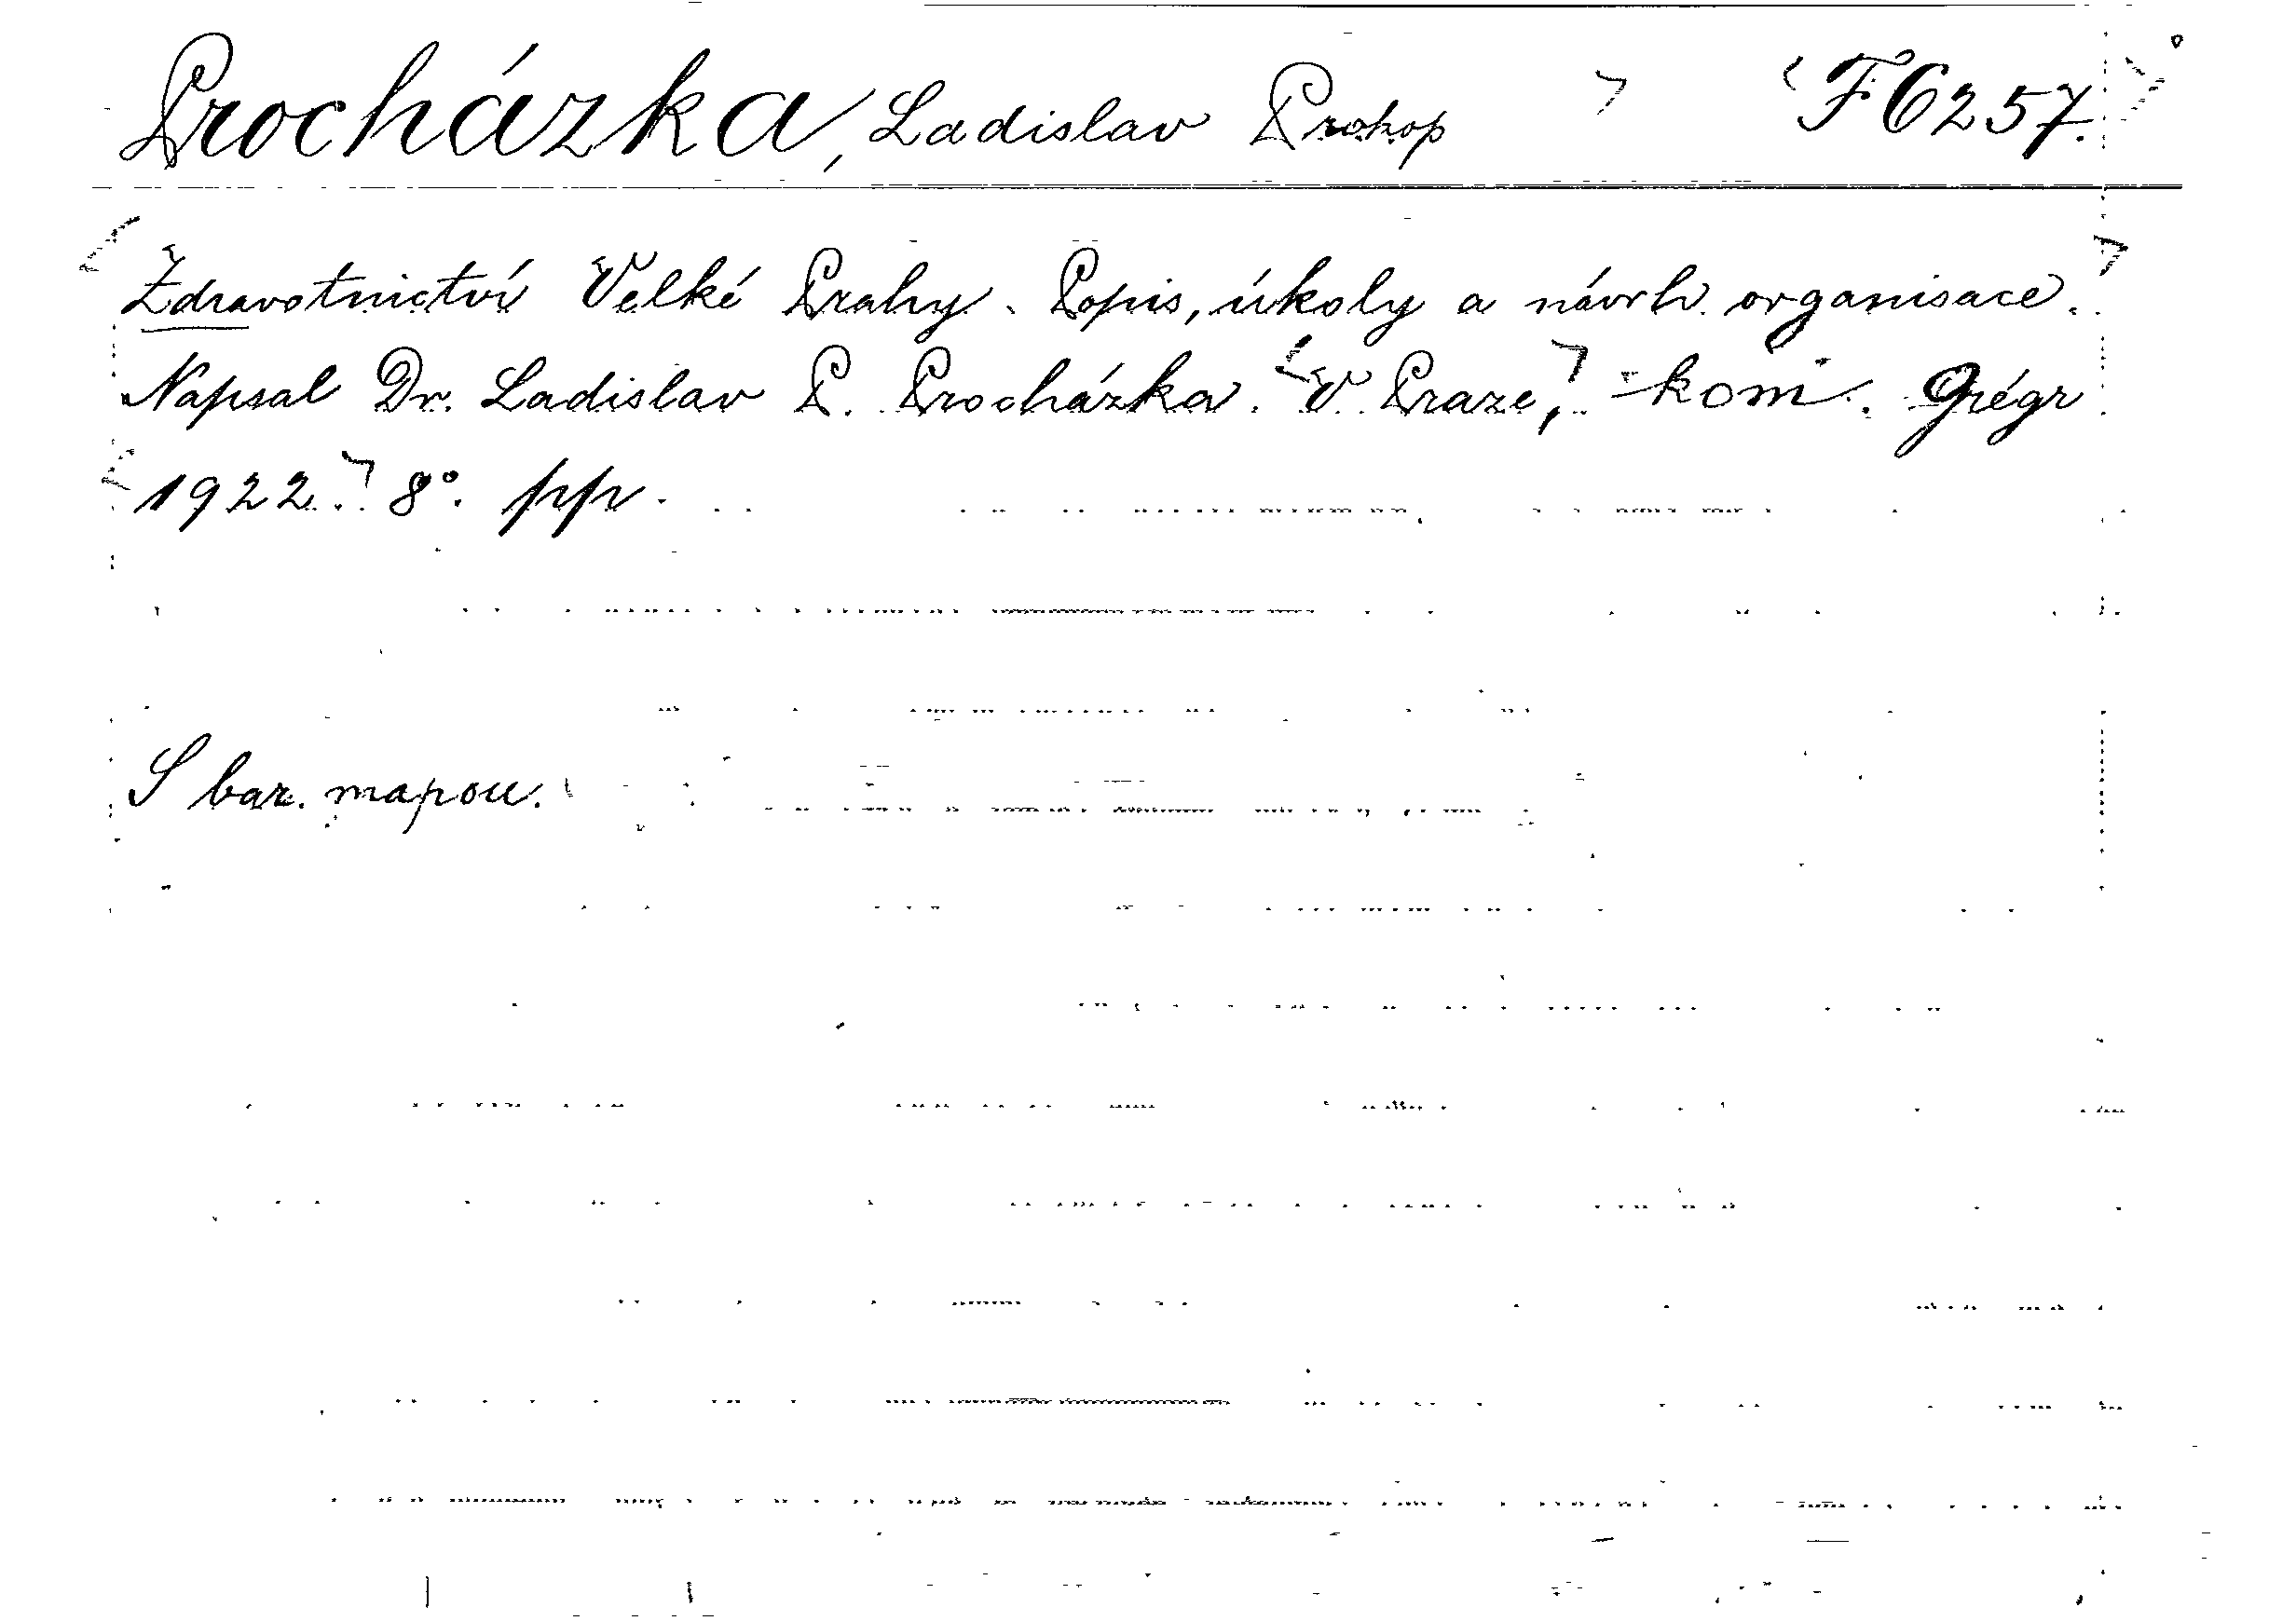 Procházka, Ladislav Prokop F 6257.
Zdravotnictví Velké Prahy. Popis, úkoly a návrh organisace.
Napsal Dr. Ladislav P. Procházka. V Praze, kom. Grégr
1922. 8°. pp.
S bar. mapou.